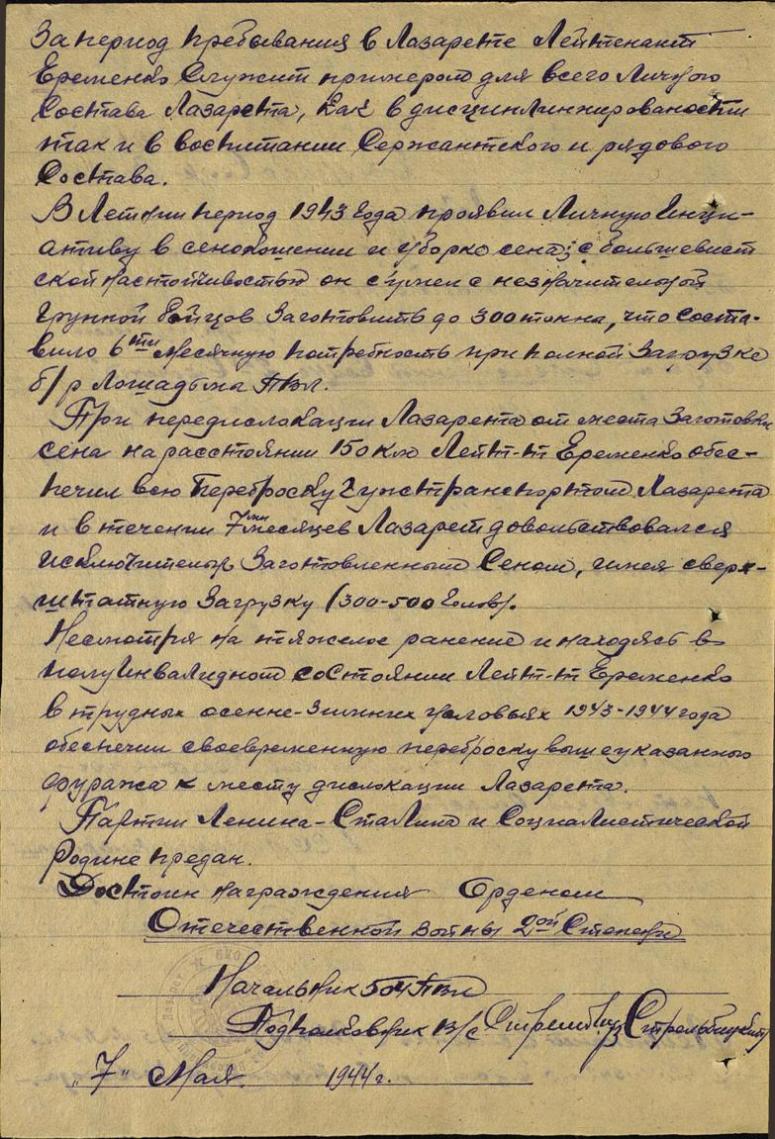 За период пребывания в Лазарете Лейтенант
Еременко Служит примером для всего Личного
Состава Лазарета, как в дисциплинжированости
так и в воспитании Сержантского и рядового
Состава.
В Летний период 1943 года проявил Личную Иници-
ативу в сенокошении и уборке сена; с большевист
ской настойчивостью он сумел с незначительной
группой бойцов Заготовить до 300 тонна, что соста-
вило 6ти месячную потребность при полной Загрузке
б/р Лошадьма ПВЛ.
При передислокации Лазарета от места Заготовки
сена на расстоянии 150 км Лейт-т Еременко обес-
печил всю переброску гужтранспортом Лазарета
и в течении 7ми месяцев Лазарет довольствовался
исключительно Заготовленным Сеном, имея сверх-
штатную Загрузку (300-500 голов).
Несмотря на тяжелое ранение и находясь в
полуинвалидном состоянии Лейт-т Еременко
в трудных осенне-Зимних условьях 1943-1944 года
обеспечил своевременную переброску вышеуказанного
фуража к месту дислокации Лазарета.
Партии Ленина-Сталина и Социалистической
Родине предан.
Достоин награждения Орденом
Отечественной войны 2ой Степени
Начальник 504 ПВЛ
Подполковник в/с Стрельбицкий
"7" Мая 1944 г.